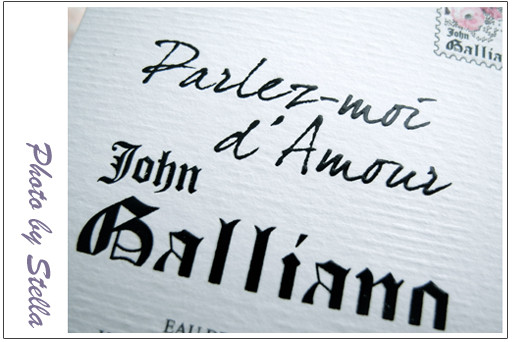 John
Galliano
Parlez-moi
d'Amour
John
Galliano
EAU DE
Photo by Stella